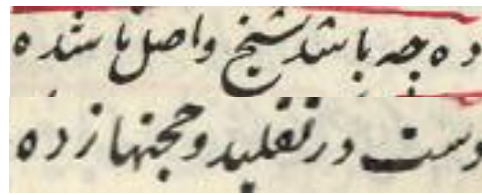 ده چه باشد شیخ واصل ناشده
دست در تقلید و حجتها زده